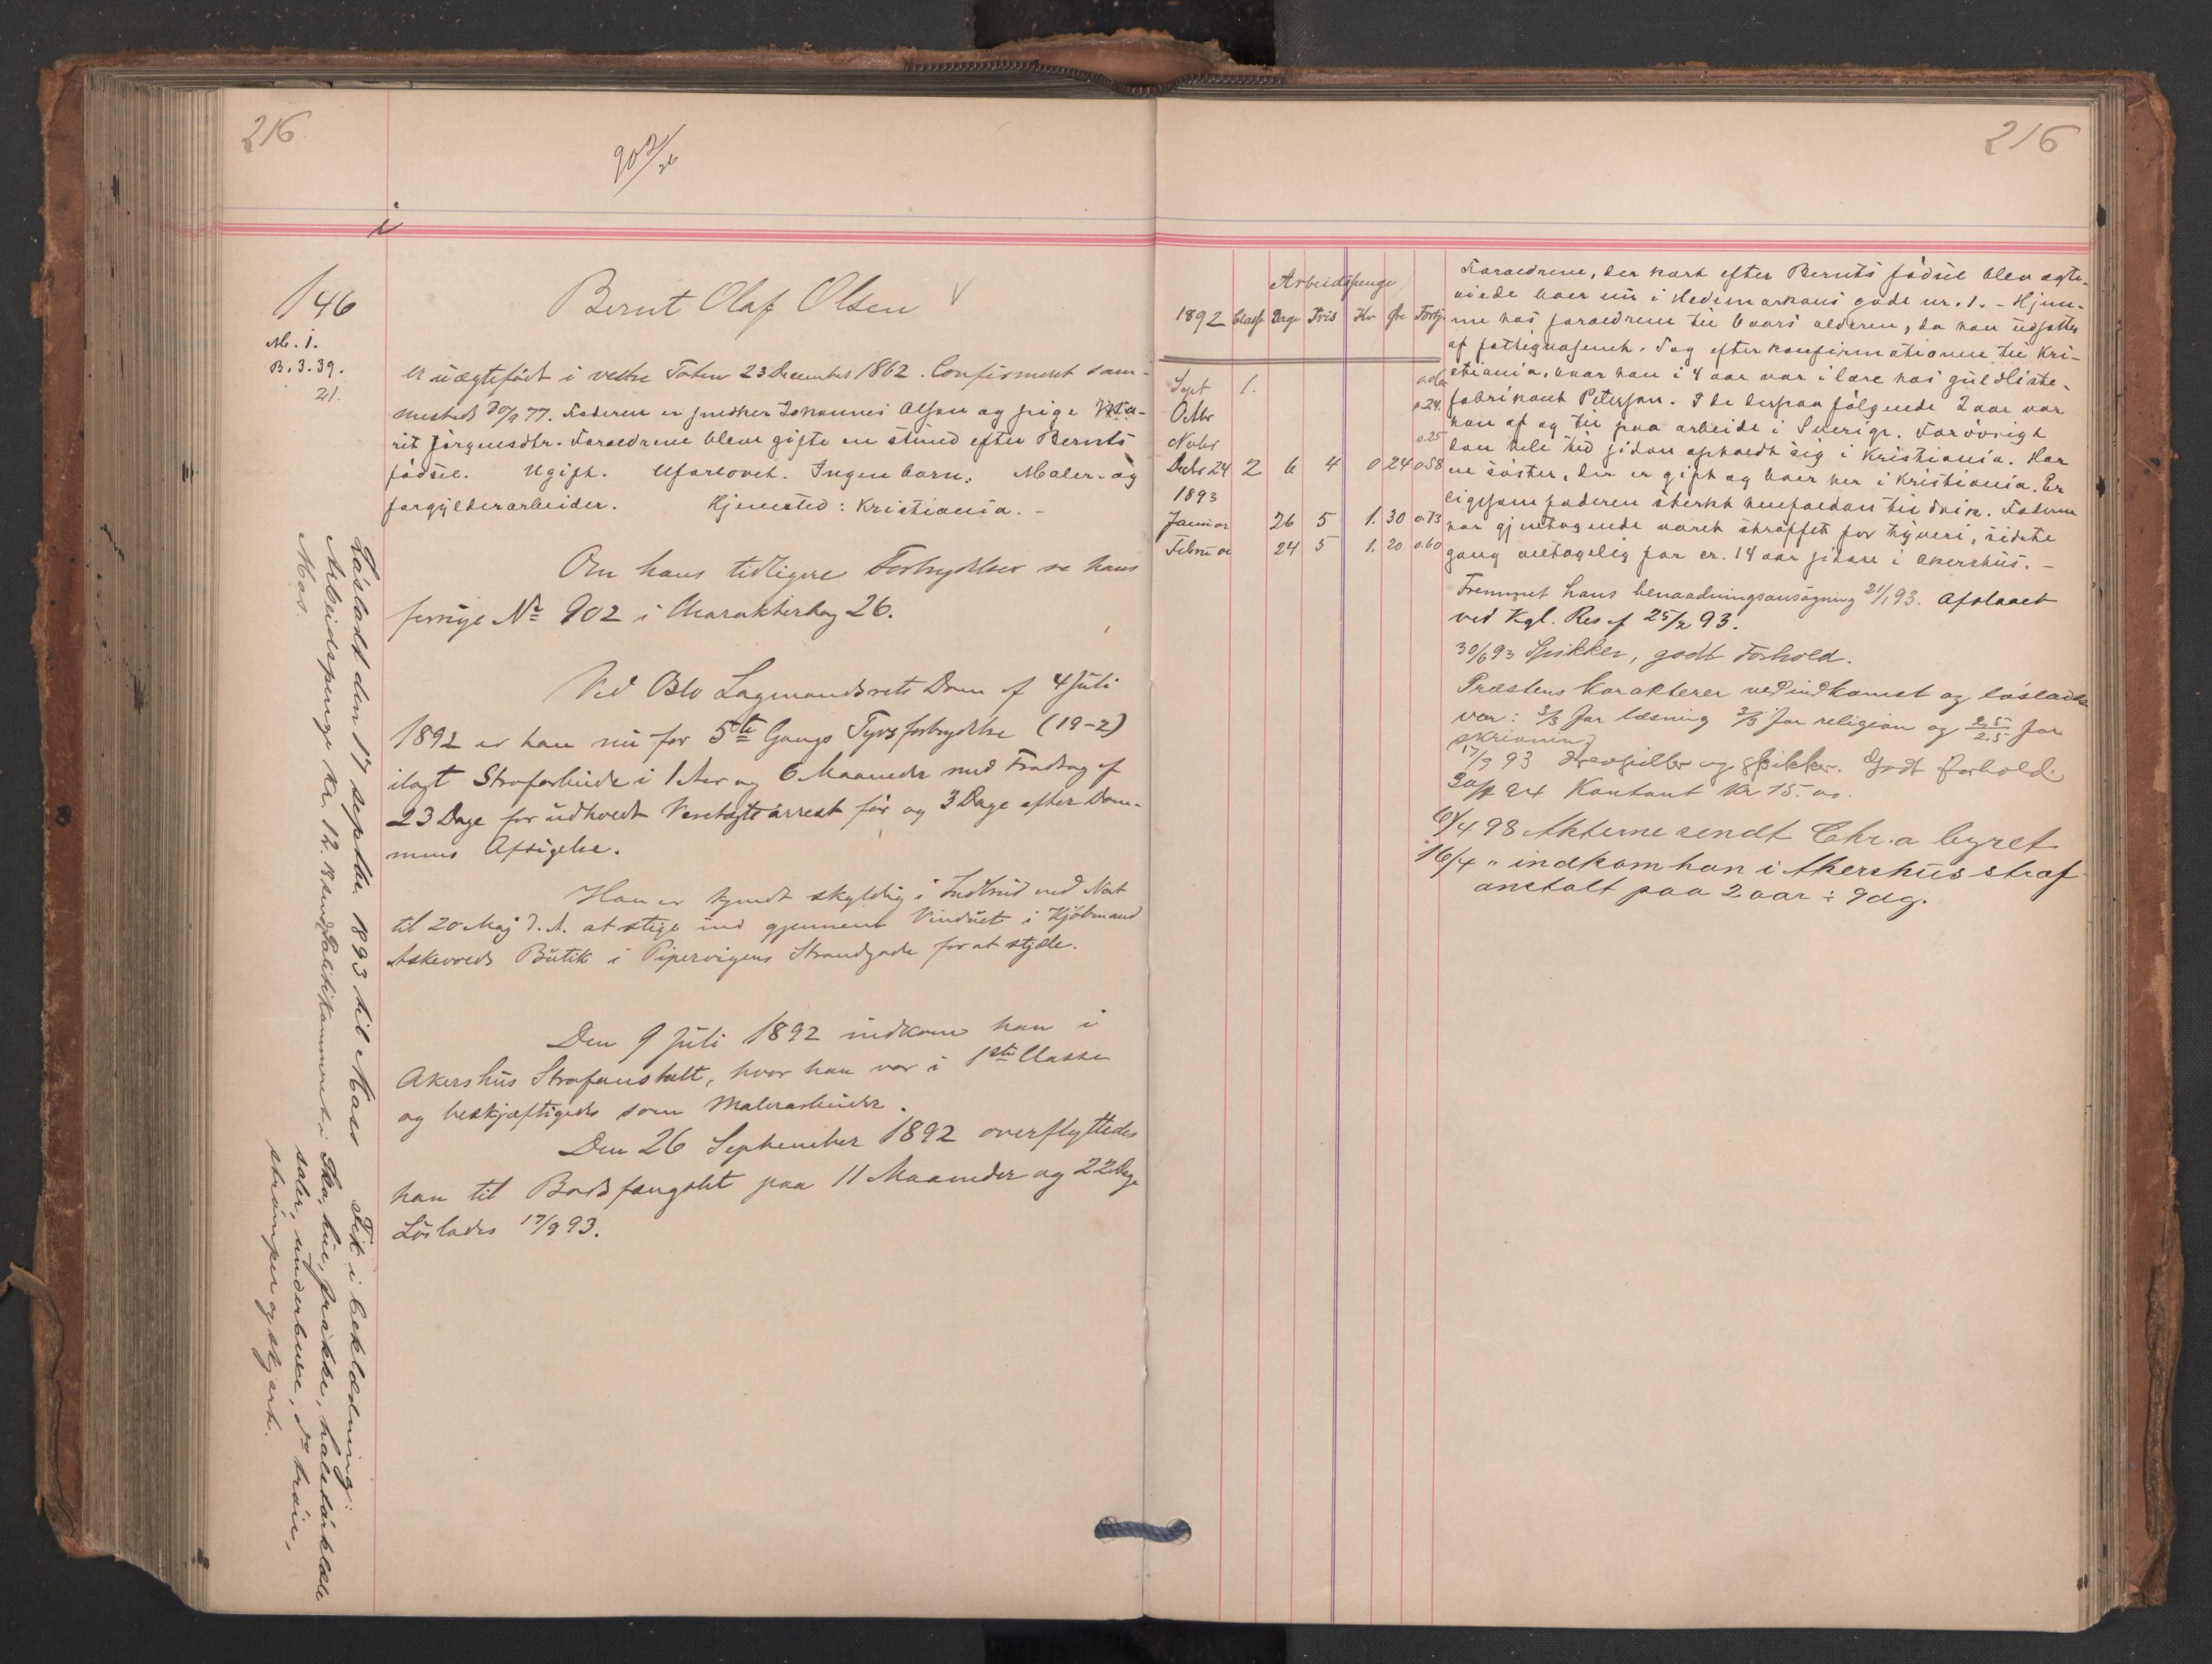 216.
902/26
i
146
M. 1.
B. 3. 39.
21.
Bernt Olaf Olsen
er uægtefödt i vestre Toten 23 December 1862. Confirmert sam-
mesteds 30/9 77. Faderen er snedker Johannes Olsen og pige Ma-
rit Jörgensdtr. Foraeldrene bleve gifte en stund efter Bernts
födsel. Ugift. Uforlovet. Ingen barn. Maler- og
forgylderarbeider. Hjemsted: Kristiania. -
Om hans tidligere Forbrydelser se hans
forrige No 902 i Charakterbog 26.
Ved Oslo Lagmandsrets Dom af 4 Juli
1892 er han nu for 5te Gangs Tyvsforbrydelse (19-2)
ilagt Strafarbeide i 1 Aar og 6 Maaneder med Fradrag af
23 Dage for udholdt Varetægtsarrest för og 3 Dage efter Dom-
mens Afsigelse.
Han er kjendt skyldig i Indbrud ved Nat
til 20 Maj d. A. at stige ind gjennem Vinduet i Kjöbmand
Askevolds Butik i Pipervigens Strandgade for at stjæle.
Den 9 Juli 1892 indkom han i
Akershus Strafanstalt, hvor han var i 1ste Classe
og beskjæftigedes som Malerarbeider.
Den 26 September 1892 overflyttedes
han til Bodsfængslet paa 11 Maaneder og 22 Dage
Löslades 17/9 93.
Lösladt den 17 septbr. 1893 til Moss
Arbeidspenge kr. 12.18 sendt Politikammeret i
Mos.
Fik i beklædning:
Sko, hue, frakke, halstörklæde
saler, underbuxe, do tröie,
strömper og skjorte.
216
Arbeidspenge
1892 Classe Dage Pris Kr Öre Fortj
Sept 1. 0.06
Octbr 0.24
Novbr 0.25
Decbr 24 2 6 4 0 24 0.58
1893
Januar 26 5 1. 30 0.73
Februar 24 5 1. 20 0.60
Foraeldrene, der kort efter Bernts födsel blev ægte-
viede boer nu i Hedemarkens gade nr. 1. - Hjem-
me hos foraeldrene til 6 aars alderen, da han udsattes
af fattigvæsenet. Tog efter konfirmationen til Kri-
stiania, hvor han i 4 aar var i lære hos guldliste-
fabrikant Peterson. I de derpaa fölgende 2 aar var
han af og til paa arbeide i Sverige. Forövrigt
den hele tid siden opholdt sig i Kristiania. Har
en söster, der er gift og boer her i Kristiania. Er
ligesom faderen sterkt henfalden til drik. Faderen
har gjentagende været straffet for tyveri, sidste
gang antagelig for cr. 14 aar siden i Akershus. -
Fremmet hans benaadningsansögning 21/1 93. Afslaaet
ved Kgl. Res af 25/2 93.
30/6 93 Spikker, godt Forhold.
Præstens karakterer ved indkomst og löslad.
var: 3/3 for læsning 3/3 for religion og 2.5/2.5 for
skrivning
17/9 93 Drevspiller og Spikker. Godt forhold.
94 Kontant Kr 15.00.
6/4 98 Akterne sendt Chr.a byret
16/4 " indkom han i Akershus straf
anstalt paa 2 aar ÷ 9 dg.